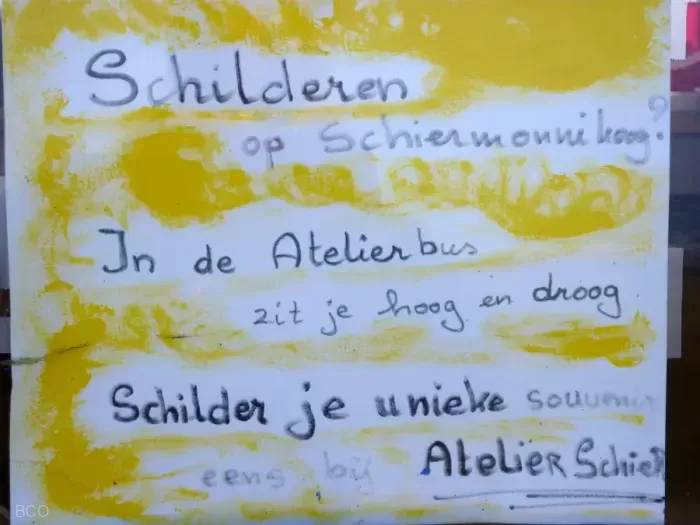 Schilderen
op Schiermonnikoog?
In de Atelierbus
zit je hoog en droog
Schilder je unieke souvenir
eens bij Atelier Schier
BCO